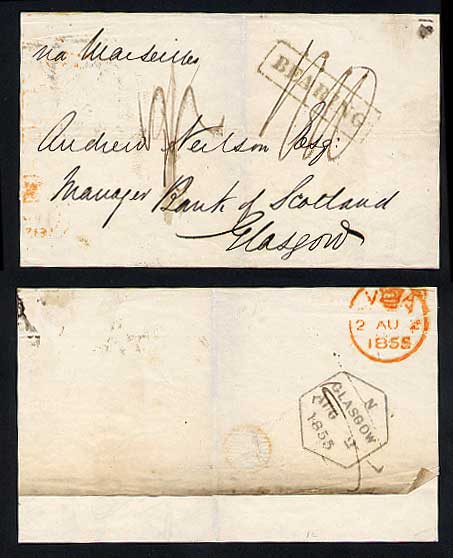 via Marseilles
BEARING
Andrew Neilson Esq:
Manager Bank of Scotland
Glasgow
2 AU 2
1855
N
GLASGOW
AUG
1855